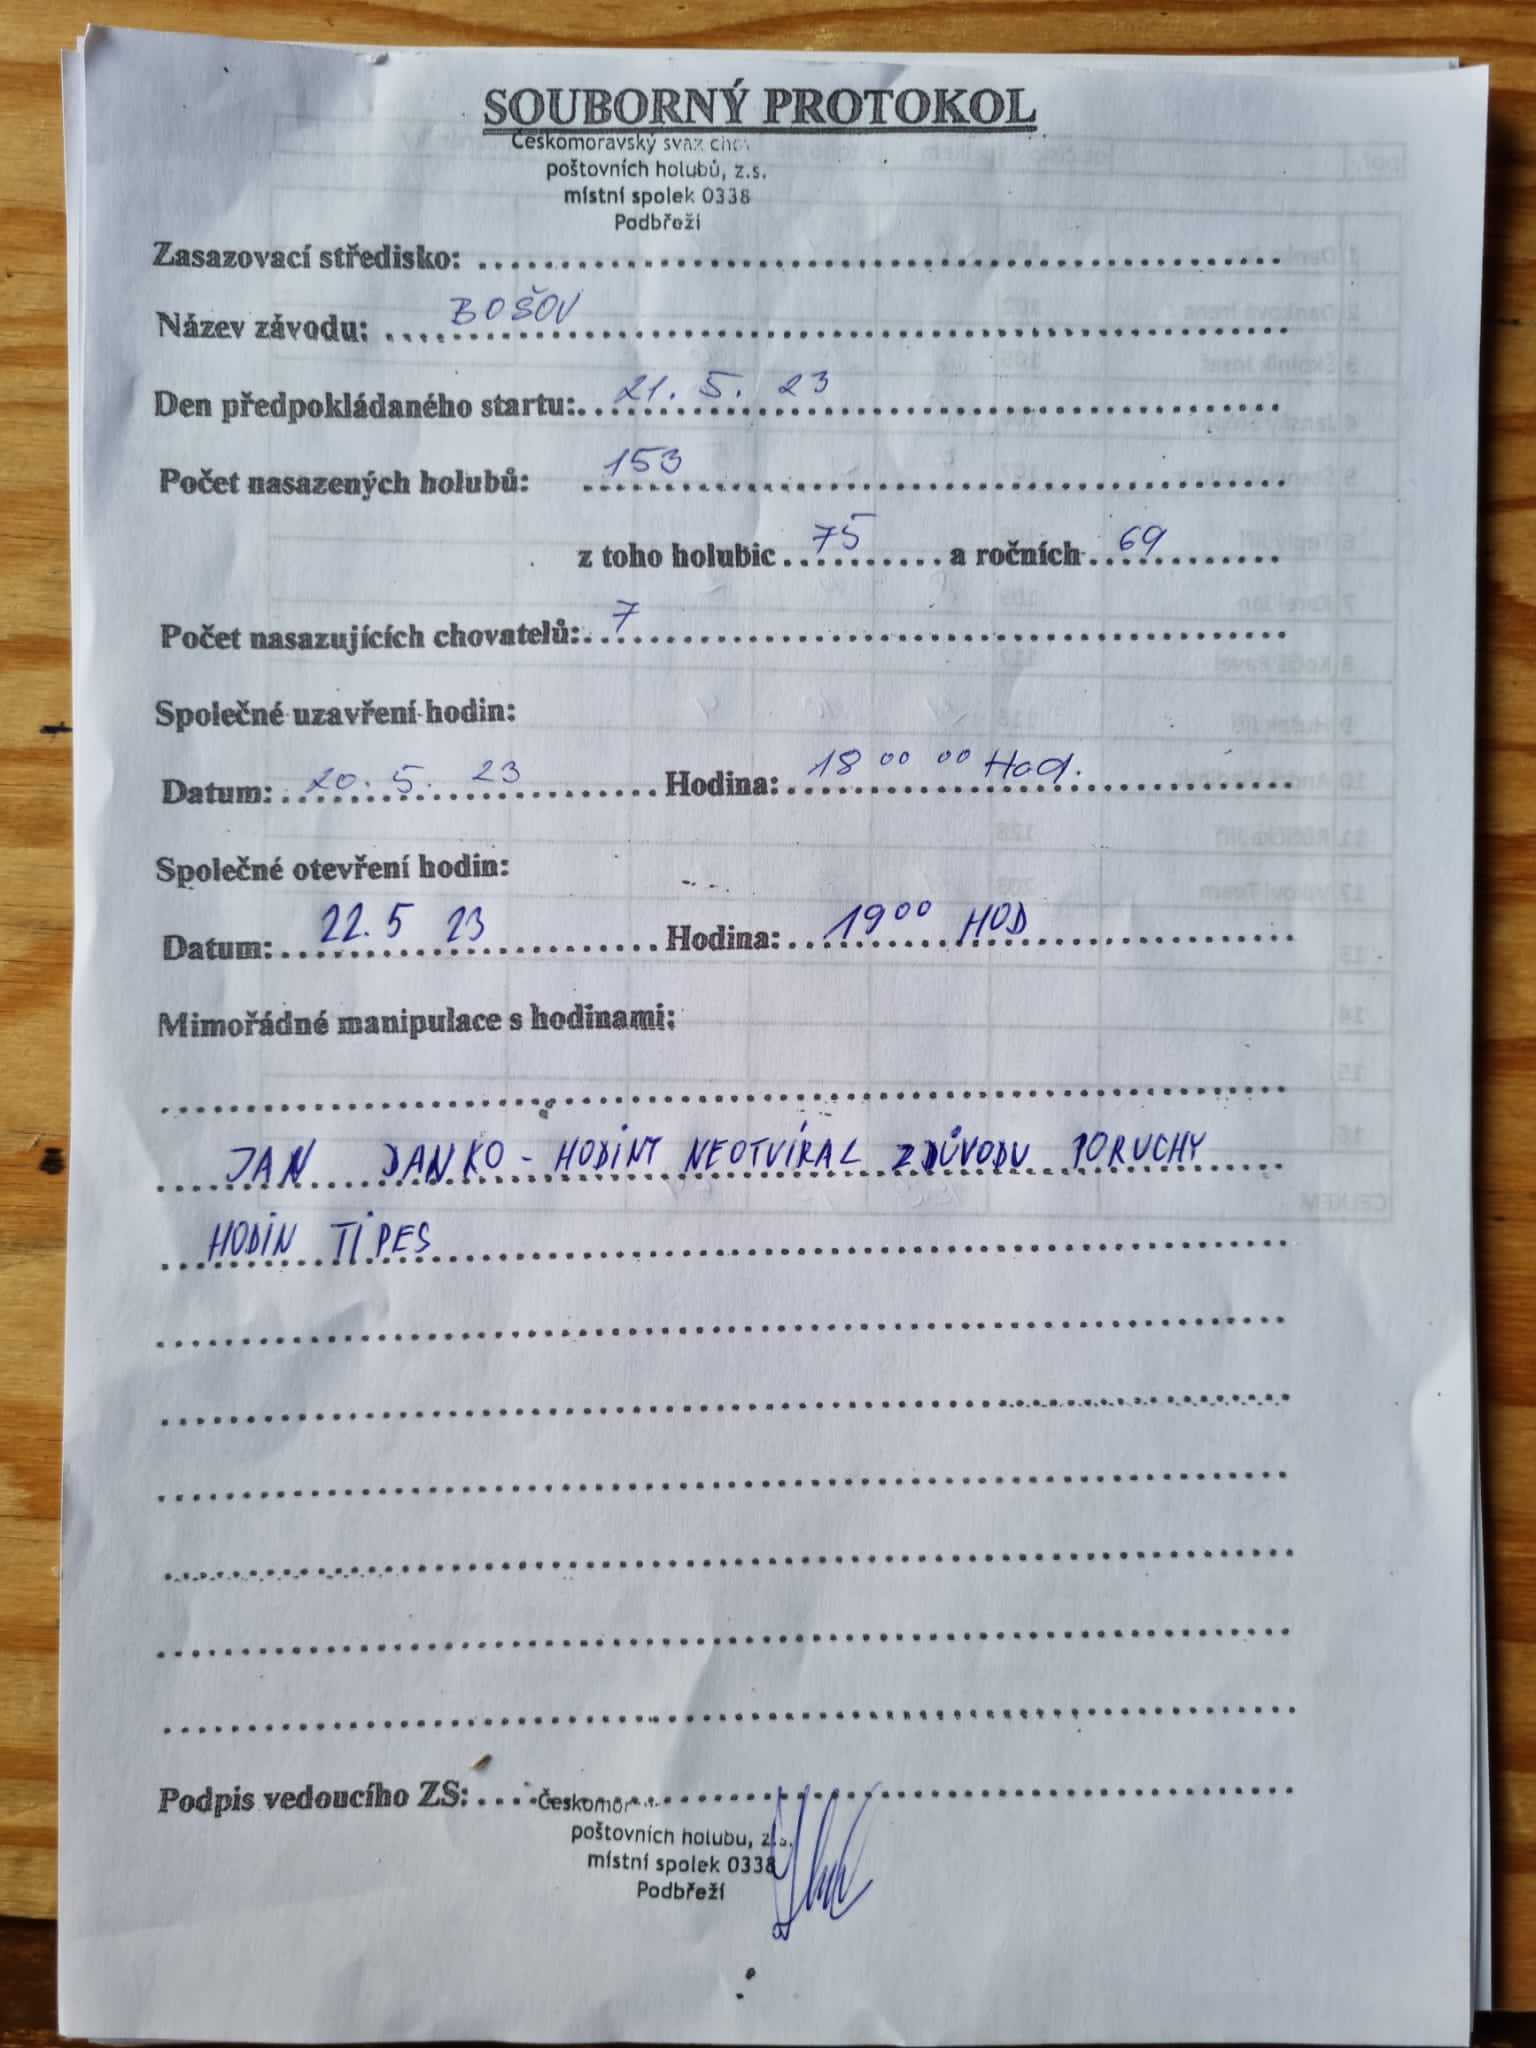 SOUBORNÝ PROTOKOL
Českomoravský svaz chov
poštovních holubů, z.s.
místní spolek 0338
Podbřeží
Zasazovací středisko:
Název závodu: BOŠOV
Den předpokládaného startu: 21. 5. 23
Počet nasazených holubů: 153
z toho holubic 75 a ročních 69
Počet nasazujících chovatelů: 7
Společné uzavření hodin:
Datum: 20. 5. 23 Hodina: 18 00 00 Hod.
Společné otevření hodin:
Datum: 22. 5 23 Hodina: 19 00 HOD
Mimořádné manipulace s hodinami:
JAN DANKO - HODINY NEOTVÍRAL Z DŮVODU PORUCHY
HODIN TIPES
Podpis vedoucího ZS:
Českomor
poštovních holubu, z.s.
místní spolek 0338
Podbřeží